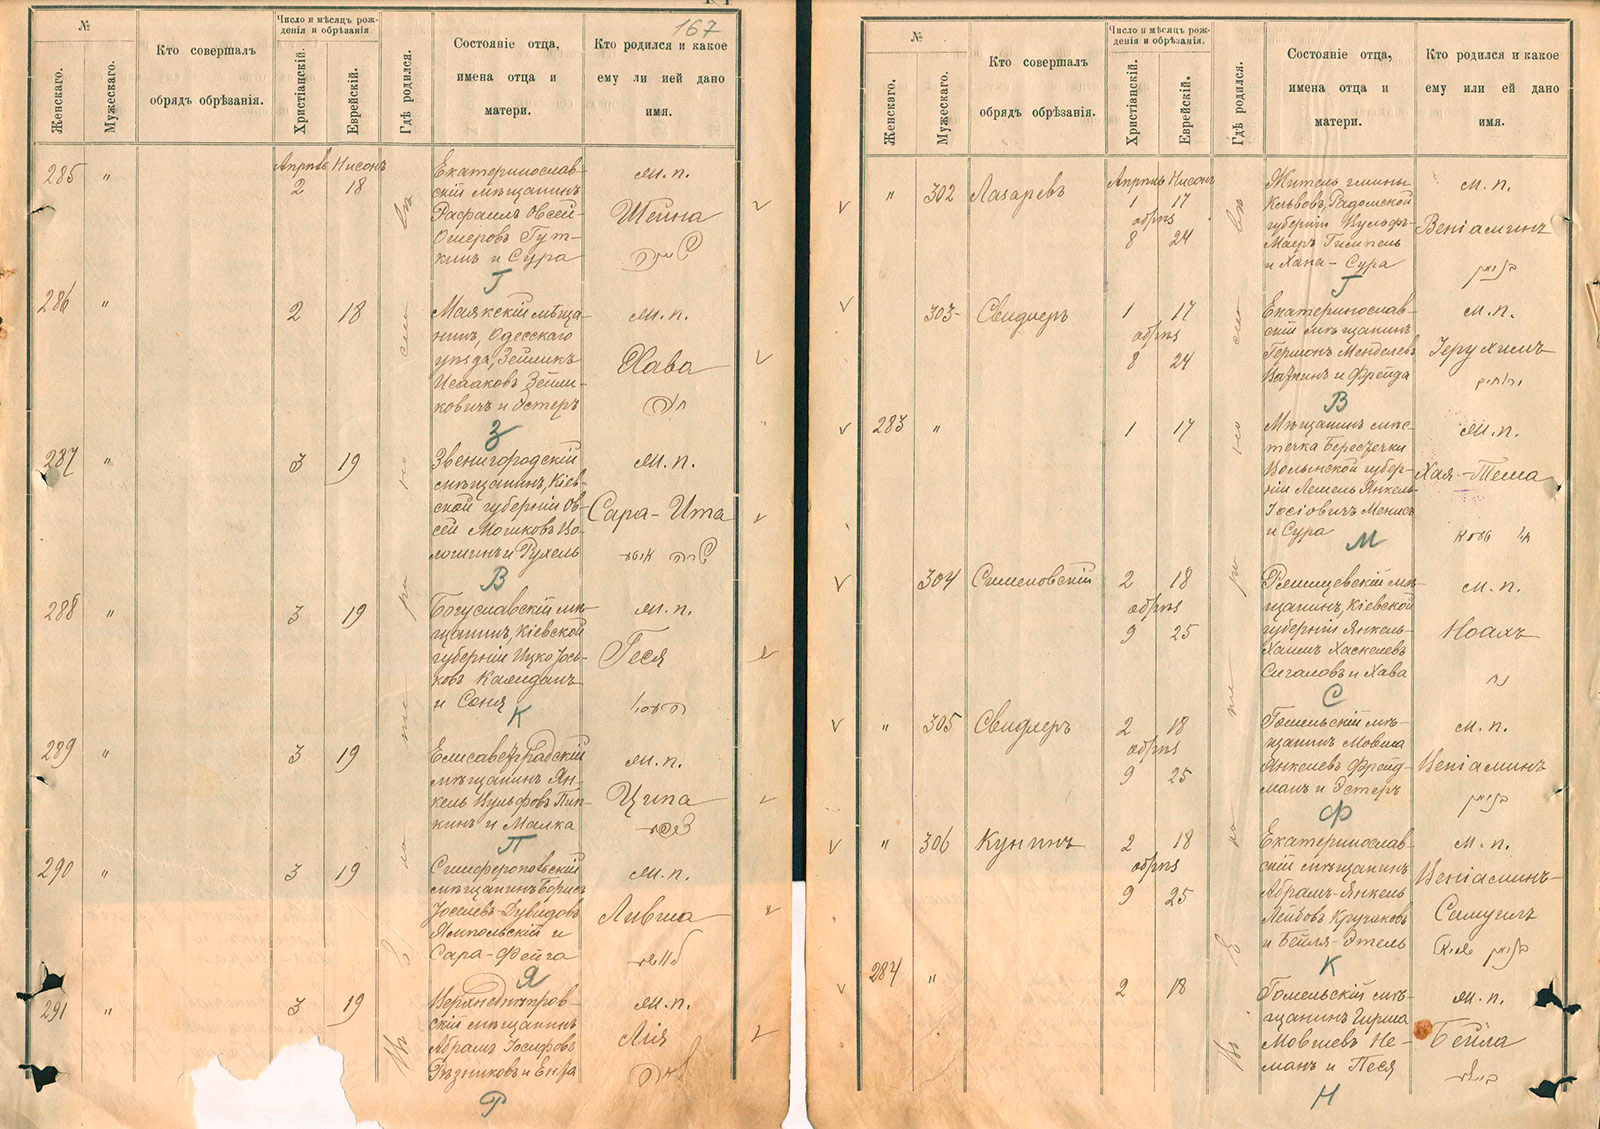 167
№
Женскаго.
Мужескаго.
Кто совершалъ
обрядъ обрѣзанія.
Число и мѣсяцъ рож-
денія и обрѣзанія.
Христіанскій.
Еврейскій.
Гдѣ родился.
Состояніе отца,
имена отца и
матери.
Кто родился и какое
ему ли ией дано
имя.
285 "
Апрѣль Нисонъ
2 18
Екатеринослав-
скій мѣщанинъ
Рафаилъ Овсей-
Ошеровъ Гут-
кинъ и Сура
Г
м. п.
Шейна
286 "
2 18
Маякскій мѣща-
нинъ, Одесскаго
уѣзда, Зейликъ
Исааковъ Зейли-
ковичъ и Эстеръ
З
м. п.
Хава
חוה
287 "
3 19
Звенигородскій
мѣщанинъ, Кіев-
ской губерніи Ов-
сей Мошковъ Во-
лошинъ и Рухель
В
м. п.
Сара-Ита
288 "
3 19
Богуславскій мѣ-
щанинъ, Кіевской
губерніи Ицко Іось-
ковъ Кажданъ
и Соня
К
м. п.
Геся
289 "
3 19
Елисаветградскій
мѣщанинъ Ян-
кель Вульфовъ Пин-
кинъ и Малка
П
м. п.
Ципа
290 "
3 19
Симферопольскій
мѣщанинъ Борисъ
Іоселевъ-Дувидовъ
Ямпольскій и
Сара-Фейга
Я
м. п.
Ливша
291 "
3 19
Верхнеднѣпров-
скій мѣщанинъ
Абрамъ Іосифовъ
Рѣзниковъ и
Р
м. п.
Лія
№
Женскаго.
Мужескаго.
Кто совершалъ
обрядъ обрѣзанія.
Число и мѣсяцъ рож-
денія и обрѣзанія.
Христіанскій.
Еврейскій.
Гдѣ родился.
Состояніе отца,
имена отца и
матери.
Кто родился и какое
ему или ей дано
имя.
" 302 Лазаревъ
Апрѣль Нисонъ
1 17
обрѣз
8 24
Житель гмины
Радомской
губерніи Вульфъ-
Маеръ Гимпель
и Хана-Сура
Г
м. п.
Веніаминъ
בנימין
303 Свидлеръ
1 17
обрѣз
8 24
Екатеринослав-
скій мѣщанинъ
Гершонъ Менделевъ
и Фрейда
В
м. п.
Іерухимъ
ירוחים
283 "
1 17
Мѣщанинъ мѣс-
течка Берестечки
Волынской губер-
ніи Лемель Янкель-
Іосіовичъ
и Сура
М
м. п.
Хая-Тема
304 Сименовскій
2 18
обрѣз
9 25
мѣ-
щанинъ, Кіевской
губерніи Янкель-
Хаимъ Хаскелевъ
Сигаловъ и Хава
С
м. п.
Ноахъ
נח
" 305 Свидлеръ
2 18
обрѣз
9 25
Гомельскій мѣ-
щанинъ Мовша
Янкелевъ Фрейд-
манъ и Эстеръ
Ф
м. п.
Веніаминъ
בנימין
" 306 Кунинъ
2 18
обрѣз
9 25
Екатеринослав-
скій мѣщанинъ
Абрамъ-Янкель
Лейбовъ Кручиковъ
и Бейля-Этель
К
м. п.
Веніаминъ-
Самуилъ
בנימין שמואל
284 "
2 18
Гомельскій мѣ-
щанинъ Гирша
Мовшевъ Не-
манъ и Песя
Н
м. п.
Бейла